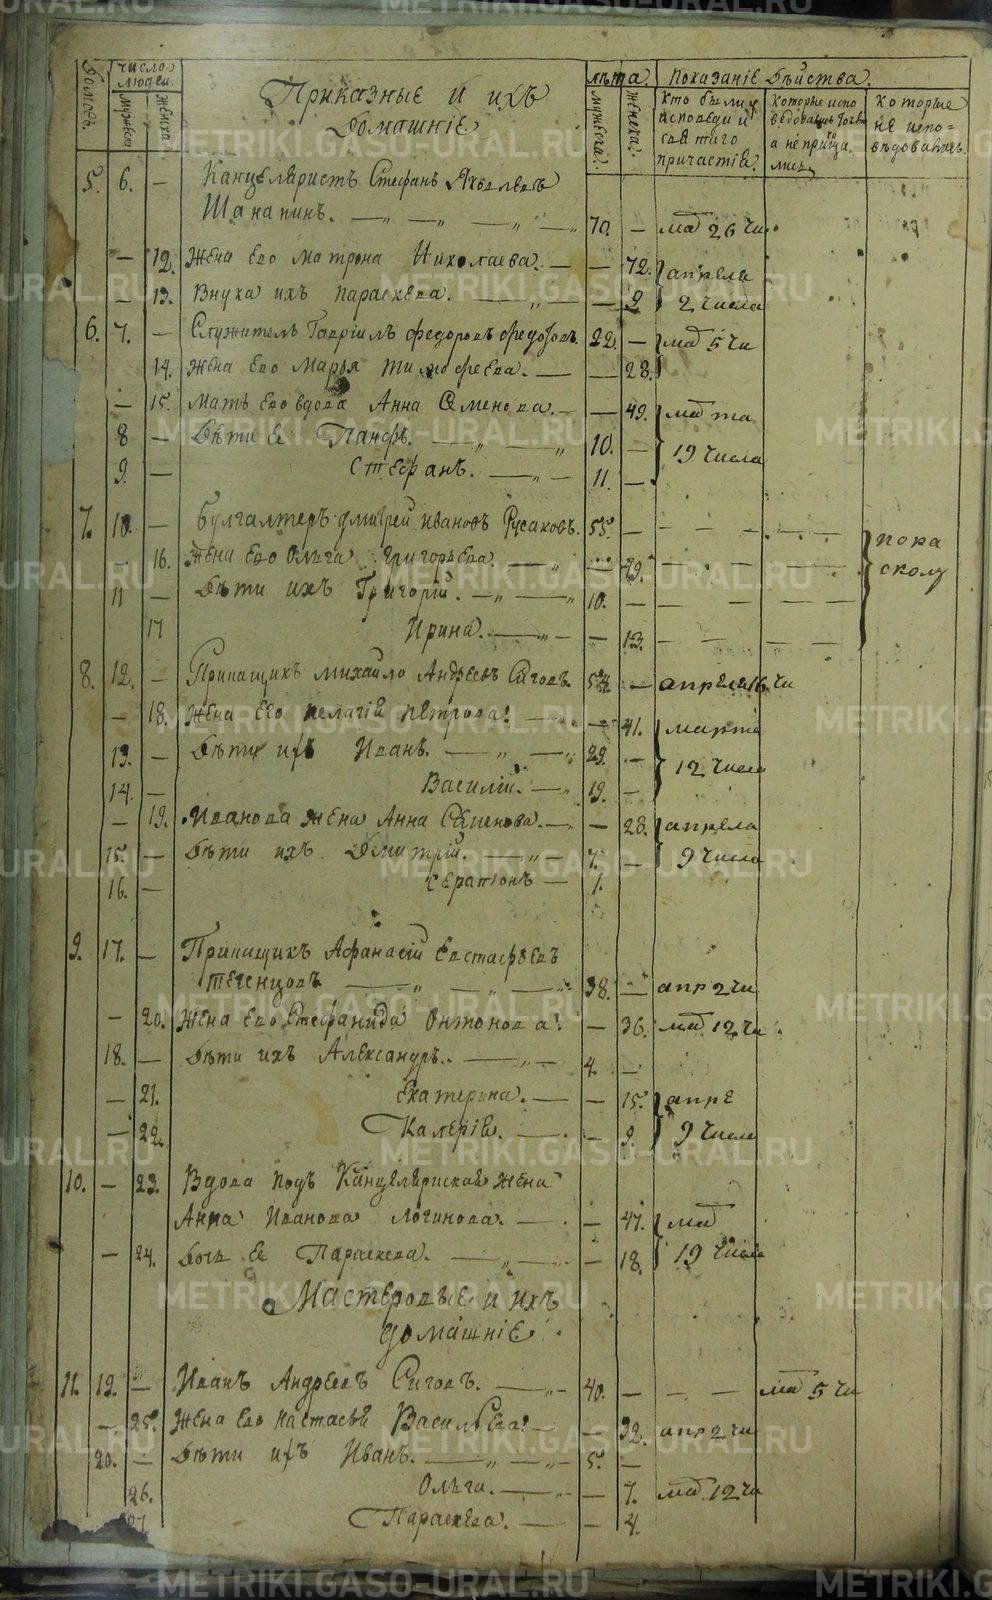 Домовъ. число людей. лѣта. Показаніе дѣйства.
мужеска женска Приказные и ихъ домашніе мужеска. женска. кто были у исповеди и свѧтаго причастіѧ. которые испо ведовалис токъмо а не прича лись которые не испо= вѣдовались.
5. 6. — Канцелѧристъ Стефанъ Ѧковлевъ
Шанапинъ. — „ — „ — „ — „ 70. — мар 26 чи
— 12. жена его матрона Николаева. — — 72. апрела
— 13. Внука ихъ параскева. — „ — — 9 2 числа
6. 7. — Служитель Гавріилъ федоровъ федотовъ. 22. — мар 5 чи
14. жена его марьѧ тимофеева. — — 28.
— 15. мать его вдова Анна Семенова. — — 49. марта
8 — дѣти ее Панфъ. — „ — „ 10. — 19 числа
9. — стефанъ. — „ — 11. —
7. 10. — булгалтеръ дмитрей ивановъ Русаковъ. 55. — — — — — — — пора
— 16. жена его Ольга григорьева. — „ — 49. — — — — — — сколу
11 — дѣти ихъ Григорій. — „ — „ 10. — — — — — —
17 Ирина. — „ — — 13. — — — — —
8. 12. — Прикащикъ михайло Андреевъ Сиговъ. 54. — апрелѧ 16 чи
— 18. жена его пелагіѧ петрова. — — 41. марта
13. — дѣти ихъ Иванъ. — „ — 29. — 12 числа
14. — Василій. — „ 19. —
— 19. Иванова жена Анна Семенова. — — 28. апрела
15. — дѣти ихъ Дмитрій. — „ — 7. — 9 числа
16. — серапіонъ — 1.
9. 17. — Прикащикъ Афанасій Евстафѣевъ
тегенцовъ — „ — „ — „ 38. — апр 2 чи
— 20. жена его Стефанида Онтонова. — 36. мар 12 чи
18. — дѣти ихъ Александръ. — „ — 4. —
— 21. Екатерина. — — 15. апре
— 22. Калеріѧ. — — 9. 9 числа
10. — 23. Вдова подъ Канцелѧрискаѧ жена
Анна Иванова логинова. — — 47. мар
— 24. дочь ее Параскева. — „ — — 18. 19 числа
Мастеровые и ихъ
домашніе.
11. 19. — Иванъ Андреевъ Сиговъ. — „ — 40. — — — мар 5 чи
— 25. жена его настасьѧ Васильева. — — 32. апр 2 чи
20. — дѣти ихъ Иванъ. — „ — „ — 5. —
26. Ольга. — „ — — 7. мар 12 чи
27 Параскева. — — 4.
METRIKI.GASO-URAL.RU